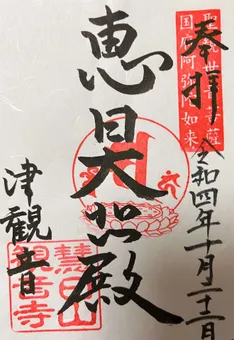 奉拝
聖観世音菩薩
国府阿弥陀如来
令和四年十月二十二日
恵日 殿
津観音
慧日山
観音寺